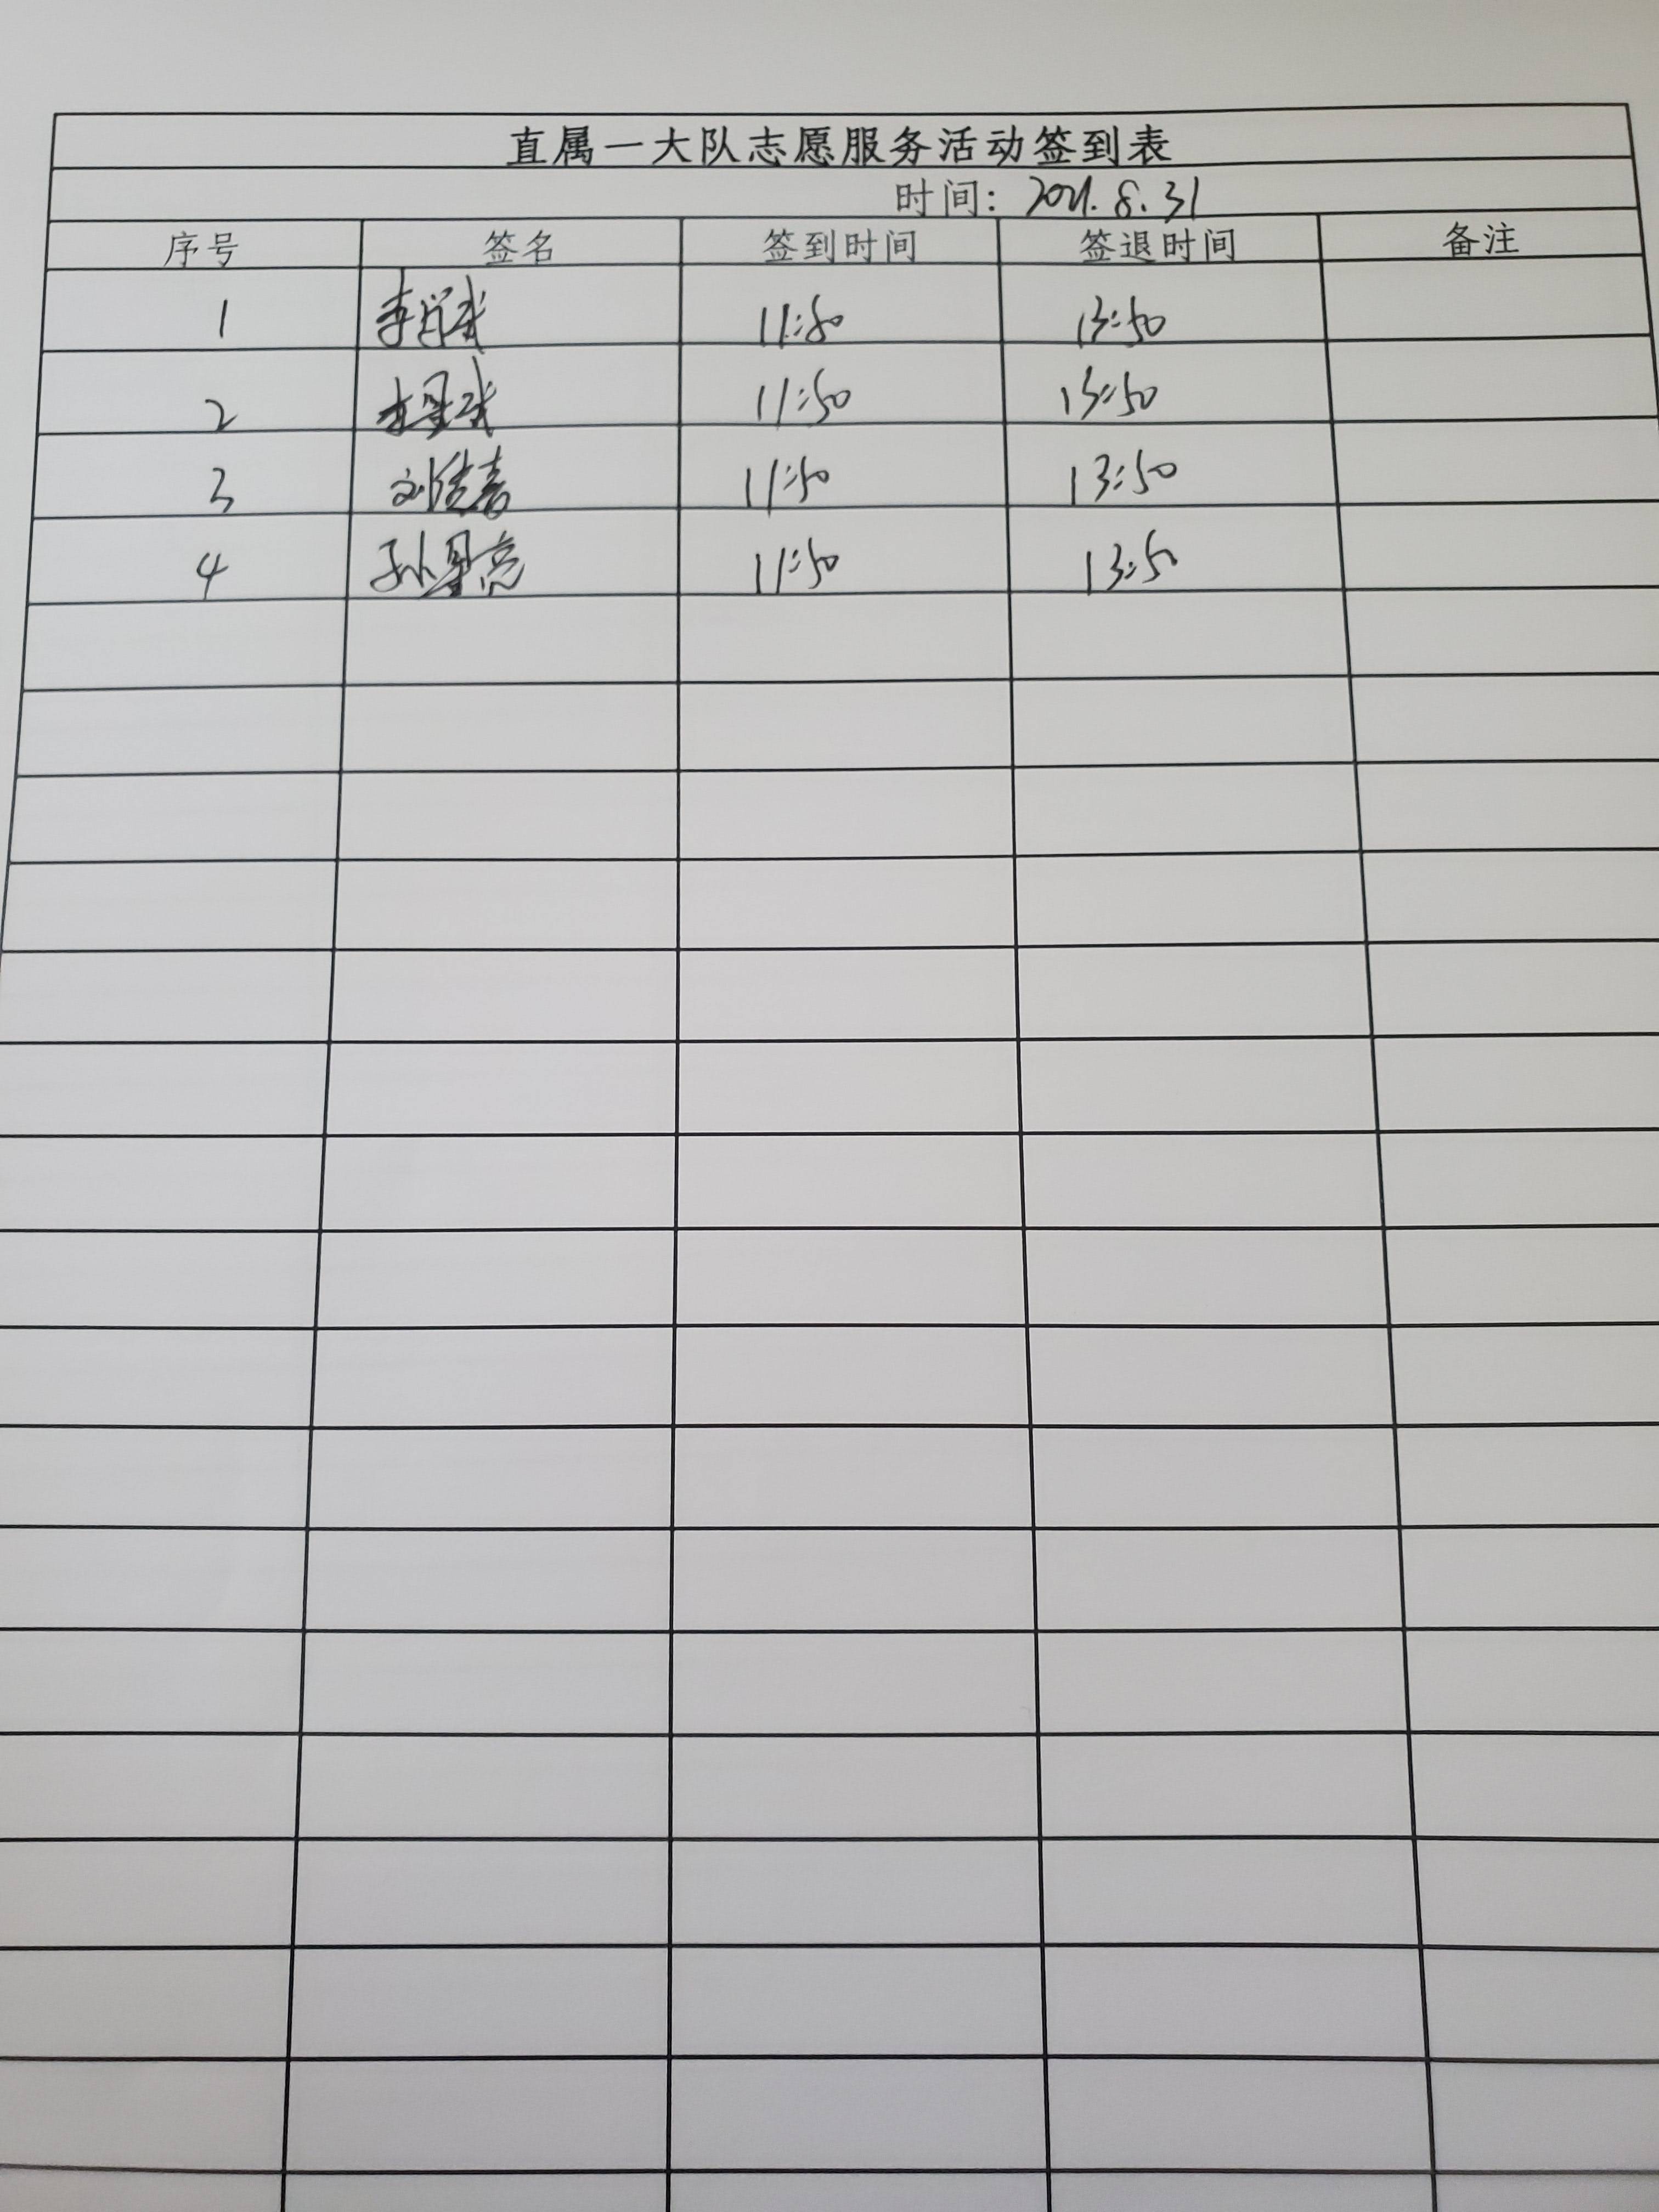 直属一大队志愿服务活动签到表
时间: 2021.8.31
序号 签名 签到时间 签退时间 备注
1 11:50 13:50
2 11:50 13:50
3 刘 11:50 13:50
4 孙 亮 11:50 13:50